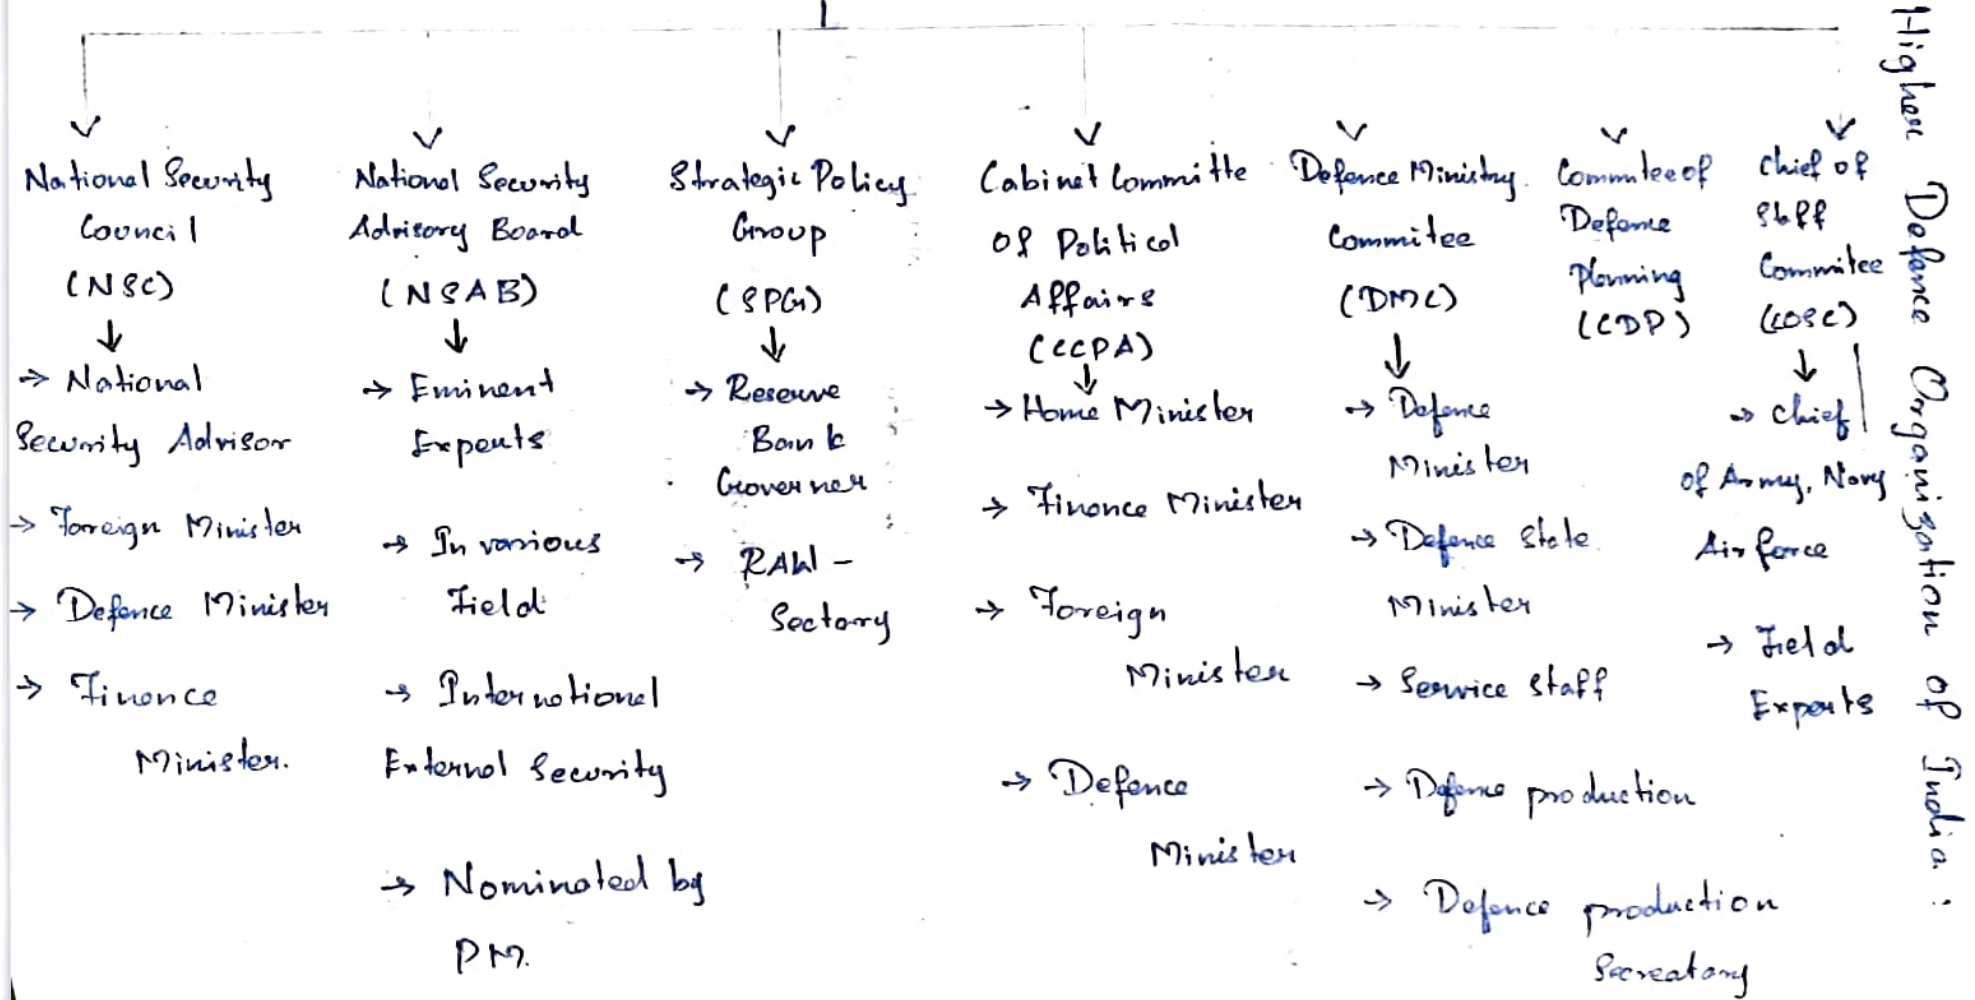 Higher Defence Organization of India :
National Security
Council
(NSC)
→ National
Security Advisor
→ Foreign Minister
→ Defence Minister
→ Finance
Minister.
National Security
Advisory Board
(NSAB)
→ Eminent
Experts
→ In various
Field
→ International
External Security
→ Nominated by
PM.
Strategic Policy
Group
(SPG)
→ Reserve
Bank
Governer
→ RAW -
Sectary
Cabinet Committe
Of Political
Affairs
(CCPA)
→ Home Minister
→ Finance Minister
→ Foreign
Minister
→ Defence
Minister
Defence Ministry
Commitee
(DMC)
→ Defence
Minister
→ Defence State
Minister
→ Service Staff
→ Defence production
→ Defence production
Secreatary
Commitee of
Defence
Planning
(CDP)
Chief of
Staff
Commitee
(COSC)
→ Chief
of Army, Navy
Air force
→ Field
Experts